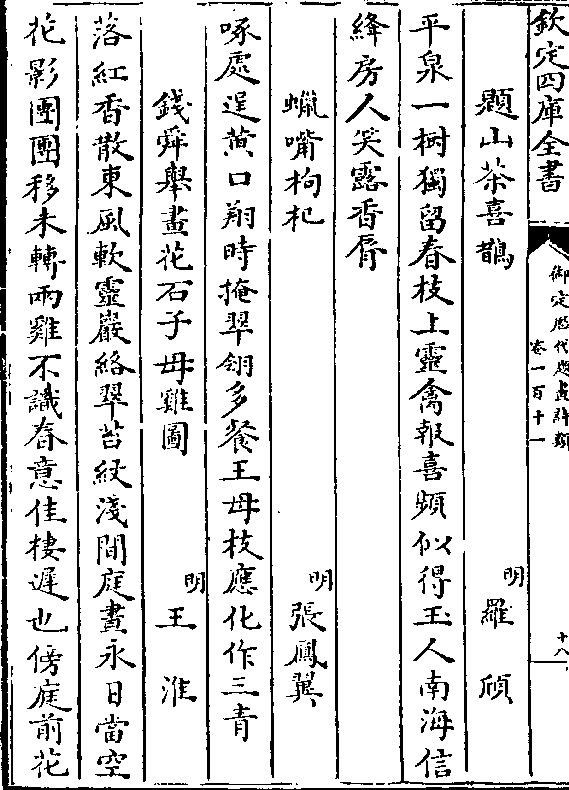 欽定四庫全書
御定歷代題畫詩類
卷一百十一
十八
題山茶喜鵲
明
羅頎
平泉一樹獨留春枝上靈禽報喜頻似得玉人南海信
絳房人笑露香脣
蠟嘴枸杞
明
張鳳翼
啄處逞黄口翔時掩翠翎多餐王母枝應化作三青
錢舜舉畫花石子母雞圖
明
王淮
落紅香散東風軟靈巖絡翠苔紋淺間庭晝永日當空
花影團團移未轉兩雞不識春意佳棲遲也傍庭前花